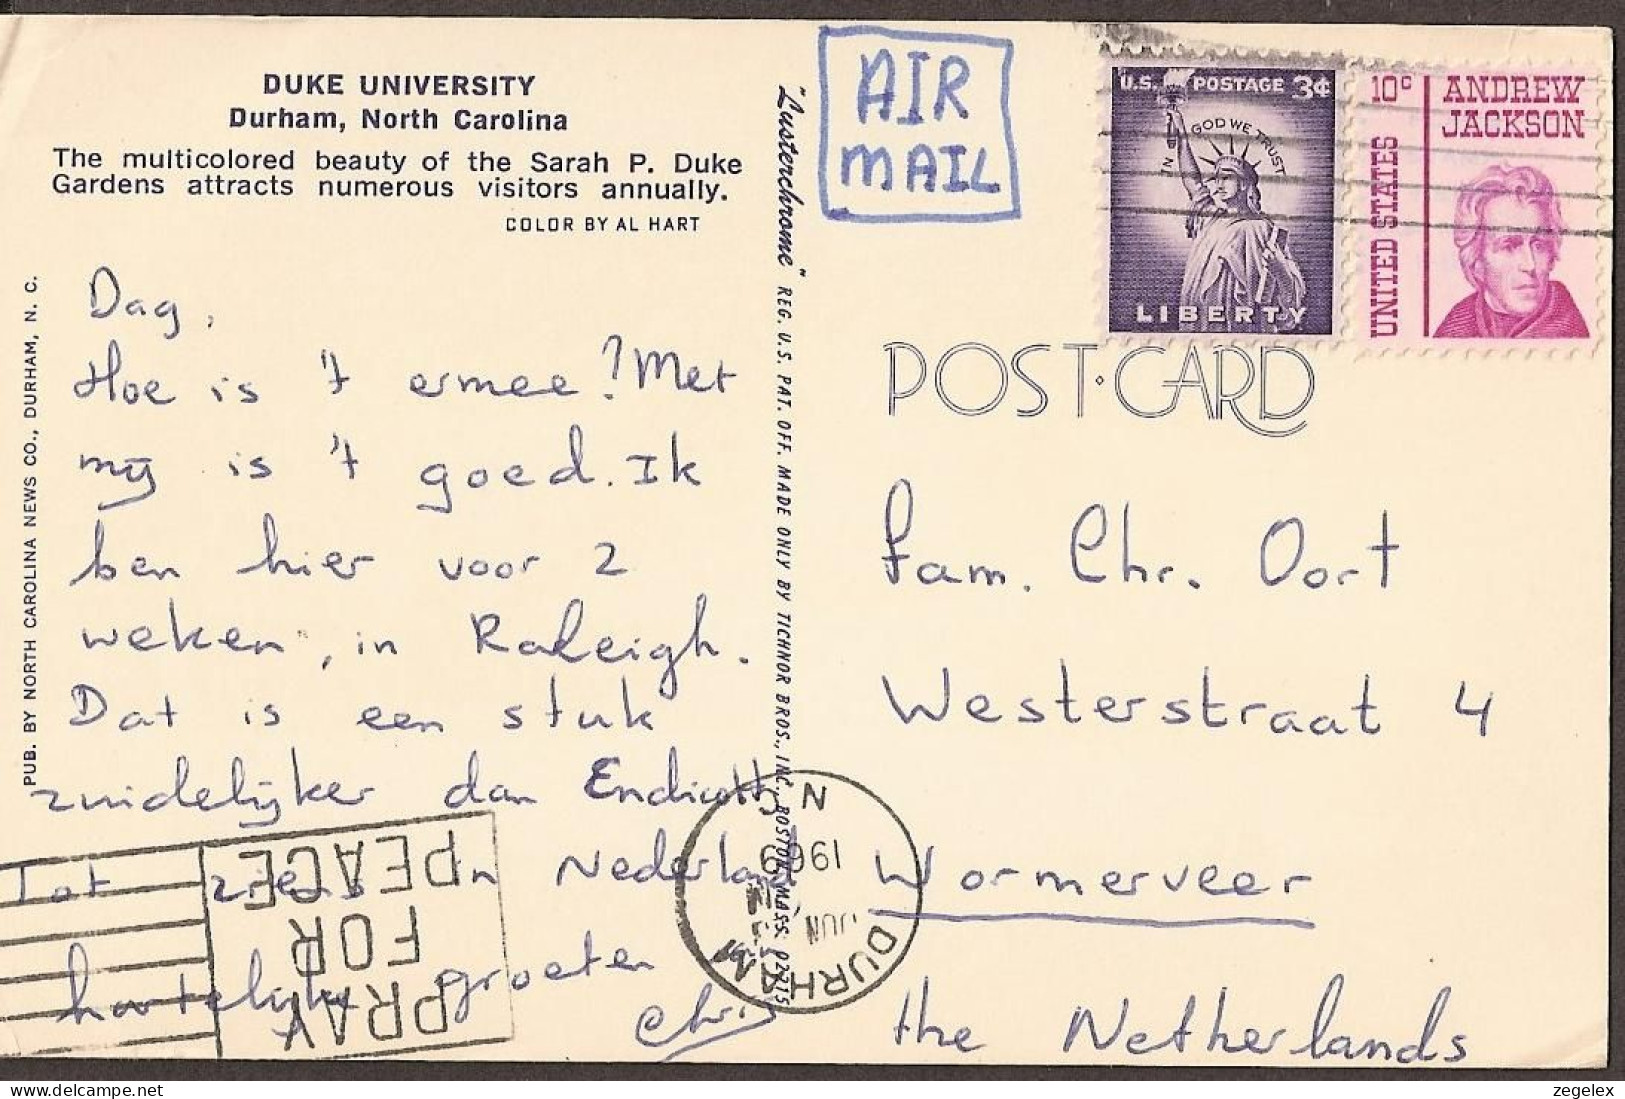 DUKE UNIVERSITY
Durham, North Carolina
The multicolored beauty of the Sarah P. Duke
Gardens attracts numerous visitors annually.
COLOR BY AL HART
PUB. BY NORTH CAROLINA NEWS CO., DURHAM, N. C.
Dag,
Hoe is 't ermee? Met
mij is 't goed. Ik
ben hier voor 2
weken, in Raleigh.
Dat is een stuk
zuidelijker dan Endicott.
Tot ziens in Nederland,
hartelijke groeten
Chr.
PRAY
FOR
PEACE
DURHAM
N C
JUN
1969
"Lusterchrome" REG. U.S. PAT. OFF. MADE ONLY BY TICHNOR BROS., INC., BOSTON, MASS. 02215
AIR
MAIL
U.S. POSTAGE 3¢
IN GOD WE TRUST
LIBERTY
10c ANDREW
JACKSON
UNITED STATES
POST CARD
fam. Chr. Oort
Westerstraat 4
Wormerveer
the Netherlands
www.delcampe.net
zegelex